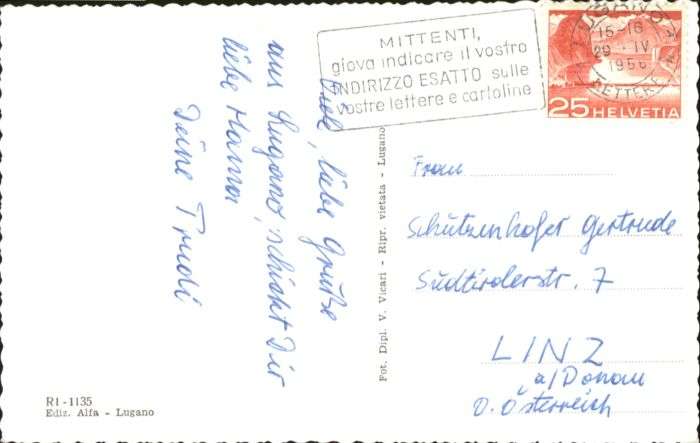 MITTENTI,
giova indicare il vostro
INDIRIZZO ESATTO sulle
vostre lettere e cartoline
15-16
29. IV
1956
LETTERE
25 HELVETIA
Viele, liebe Grüße
aus Lugano, schickt Dir
liebe Mama
Deine Trudi
Fot. Dipl. V. Vicari - Ripr. vietata - Lugano
Frau
Schützenhofer Gertrude
Südtirolerstr. 7
LINZ
a/Donau
O. Österreich
R1-1135
Ediz. Alfa - Lugano